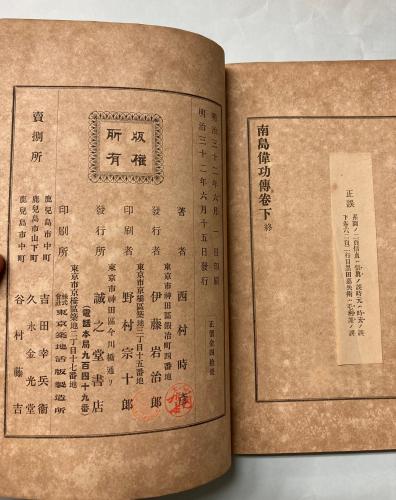 南島偉功傳卷下終
正誤
明治三十二年六月一日印刷
明治三十二年六月十五日發行
正價金四拾錢
版權所有
著者 西村時彦
東京市神田區鍛冶町四番地
發行者 伊藤岩治郎
東京市京橋區築地二丁目十五番地
印刷者 野村宗十郎
東京市神田區今川橋通り
發行所 誠之堂書店
(電話本局九百四十九番)
東京市京橋區築地二丁目十七番地
印刷所 株式會社 東京築地活版製造所
賣捌所
鹿兒島市中町 吉田幸兵衞
鹿兒島市山下町 久永金光堂
鹿兒島市中町 谷村藤吉